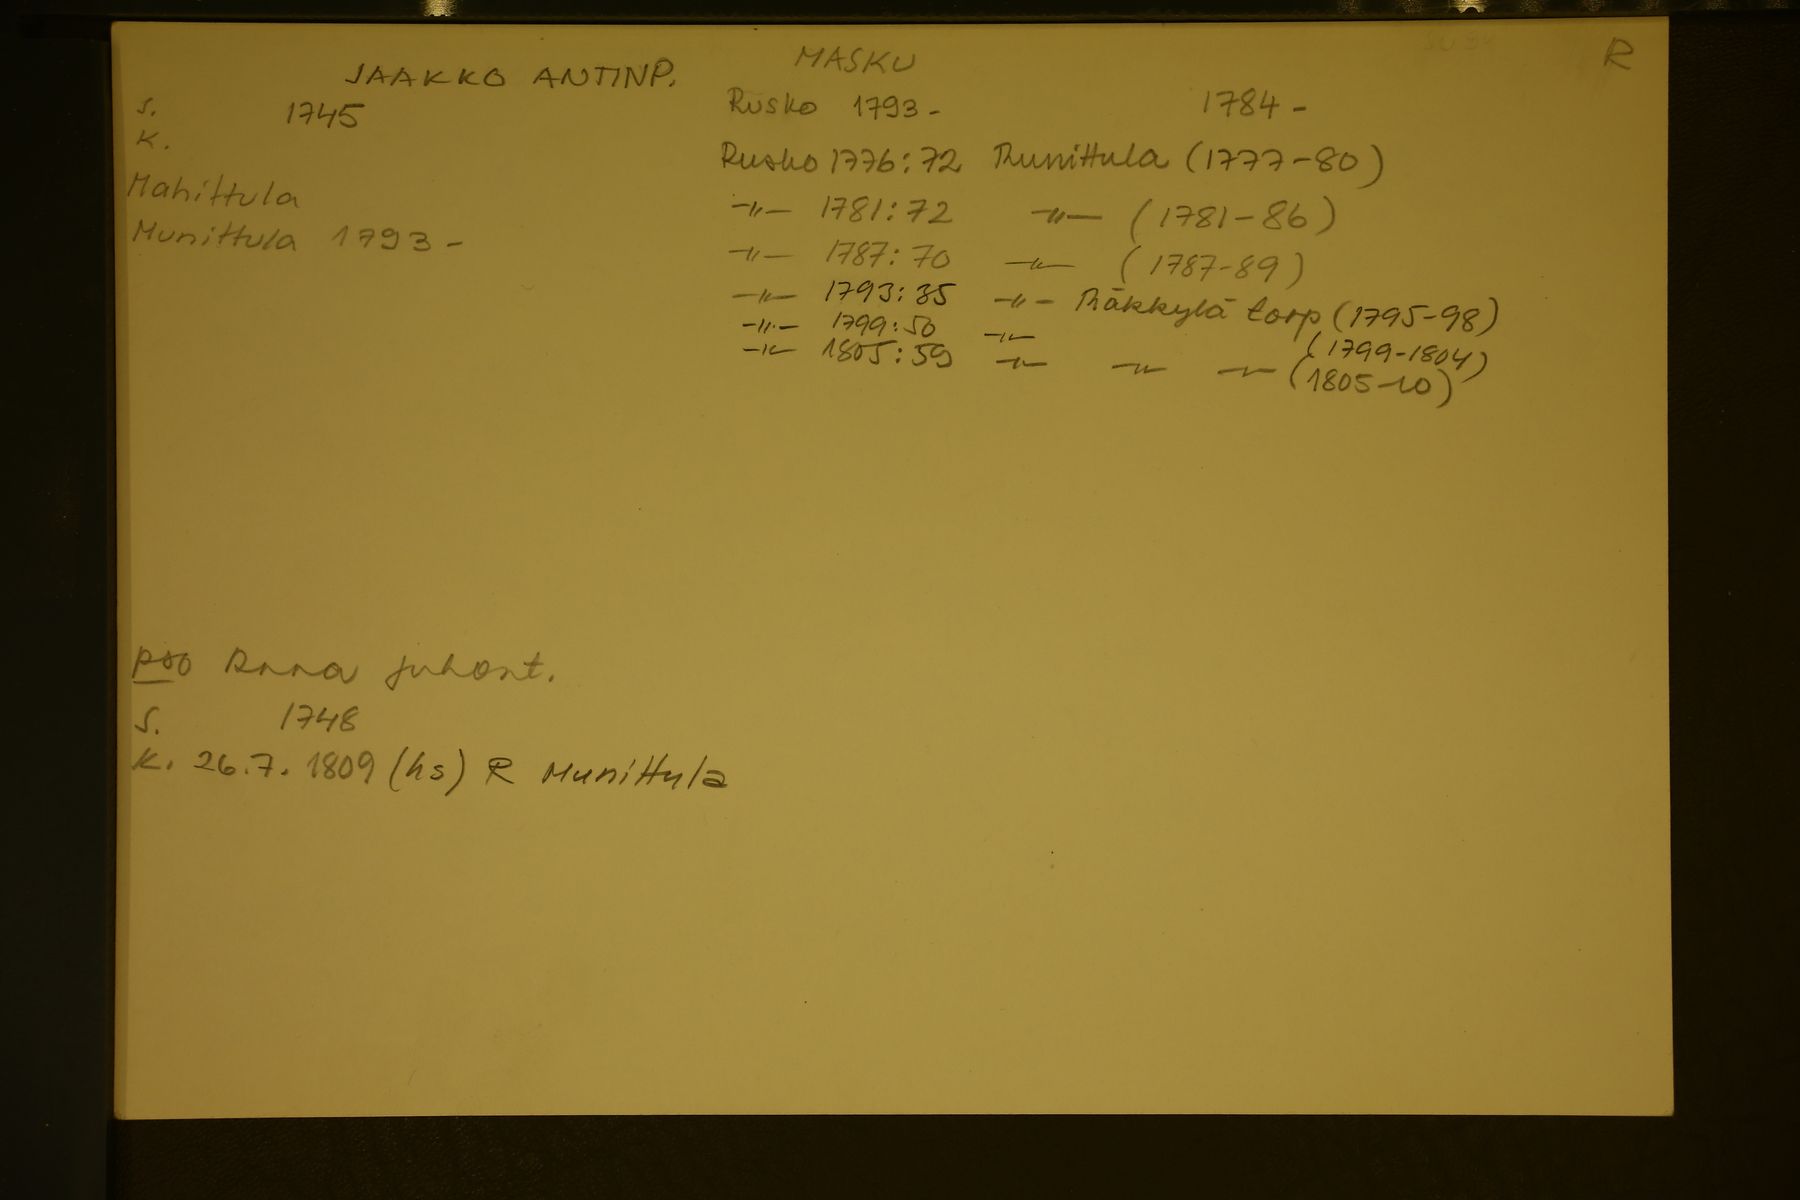 MASKU R
JAAKKO ANTINP.
s. 1745 Rusko 1793- 1784-
k.
Rusko 1776:72 Munittula (1777-80)
Mahittula
-"- 1781:72 -"- (1781-86)
Munittula 1793-
-"- 1787:70 -"- (1787-89)
-"- 1793:35 -"- Räkkylä torp (1795-98)
-"- 1799:50 -"- (1799-1804)
-"- 1805:59 -"- -"- -"- (1805-10)
pso Anna Juhont.
s. 1748
k. 26.7.1809 (hs) R Munittula